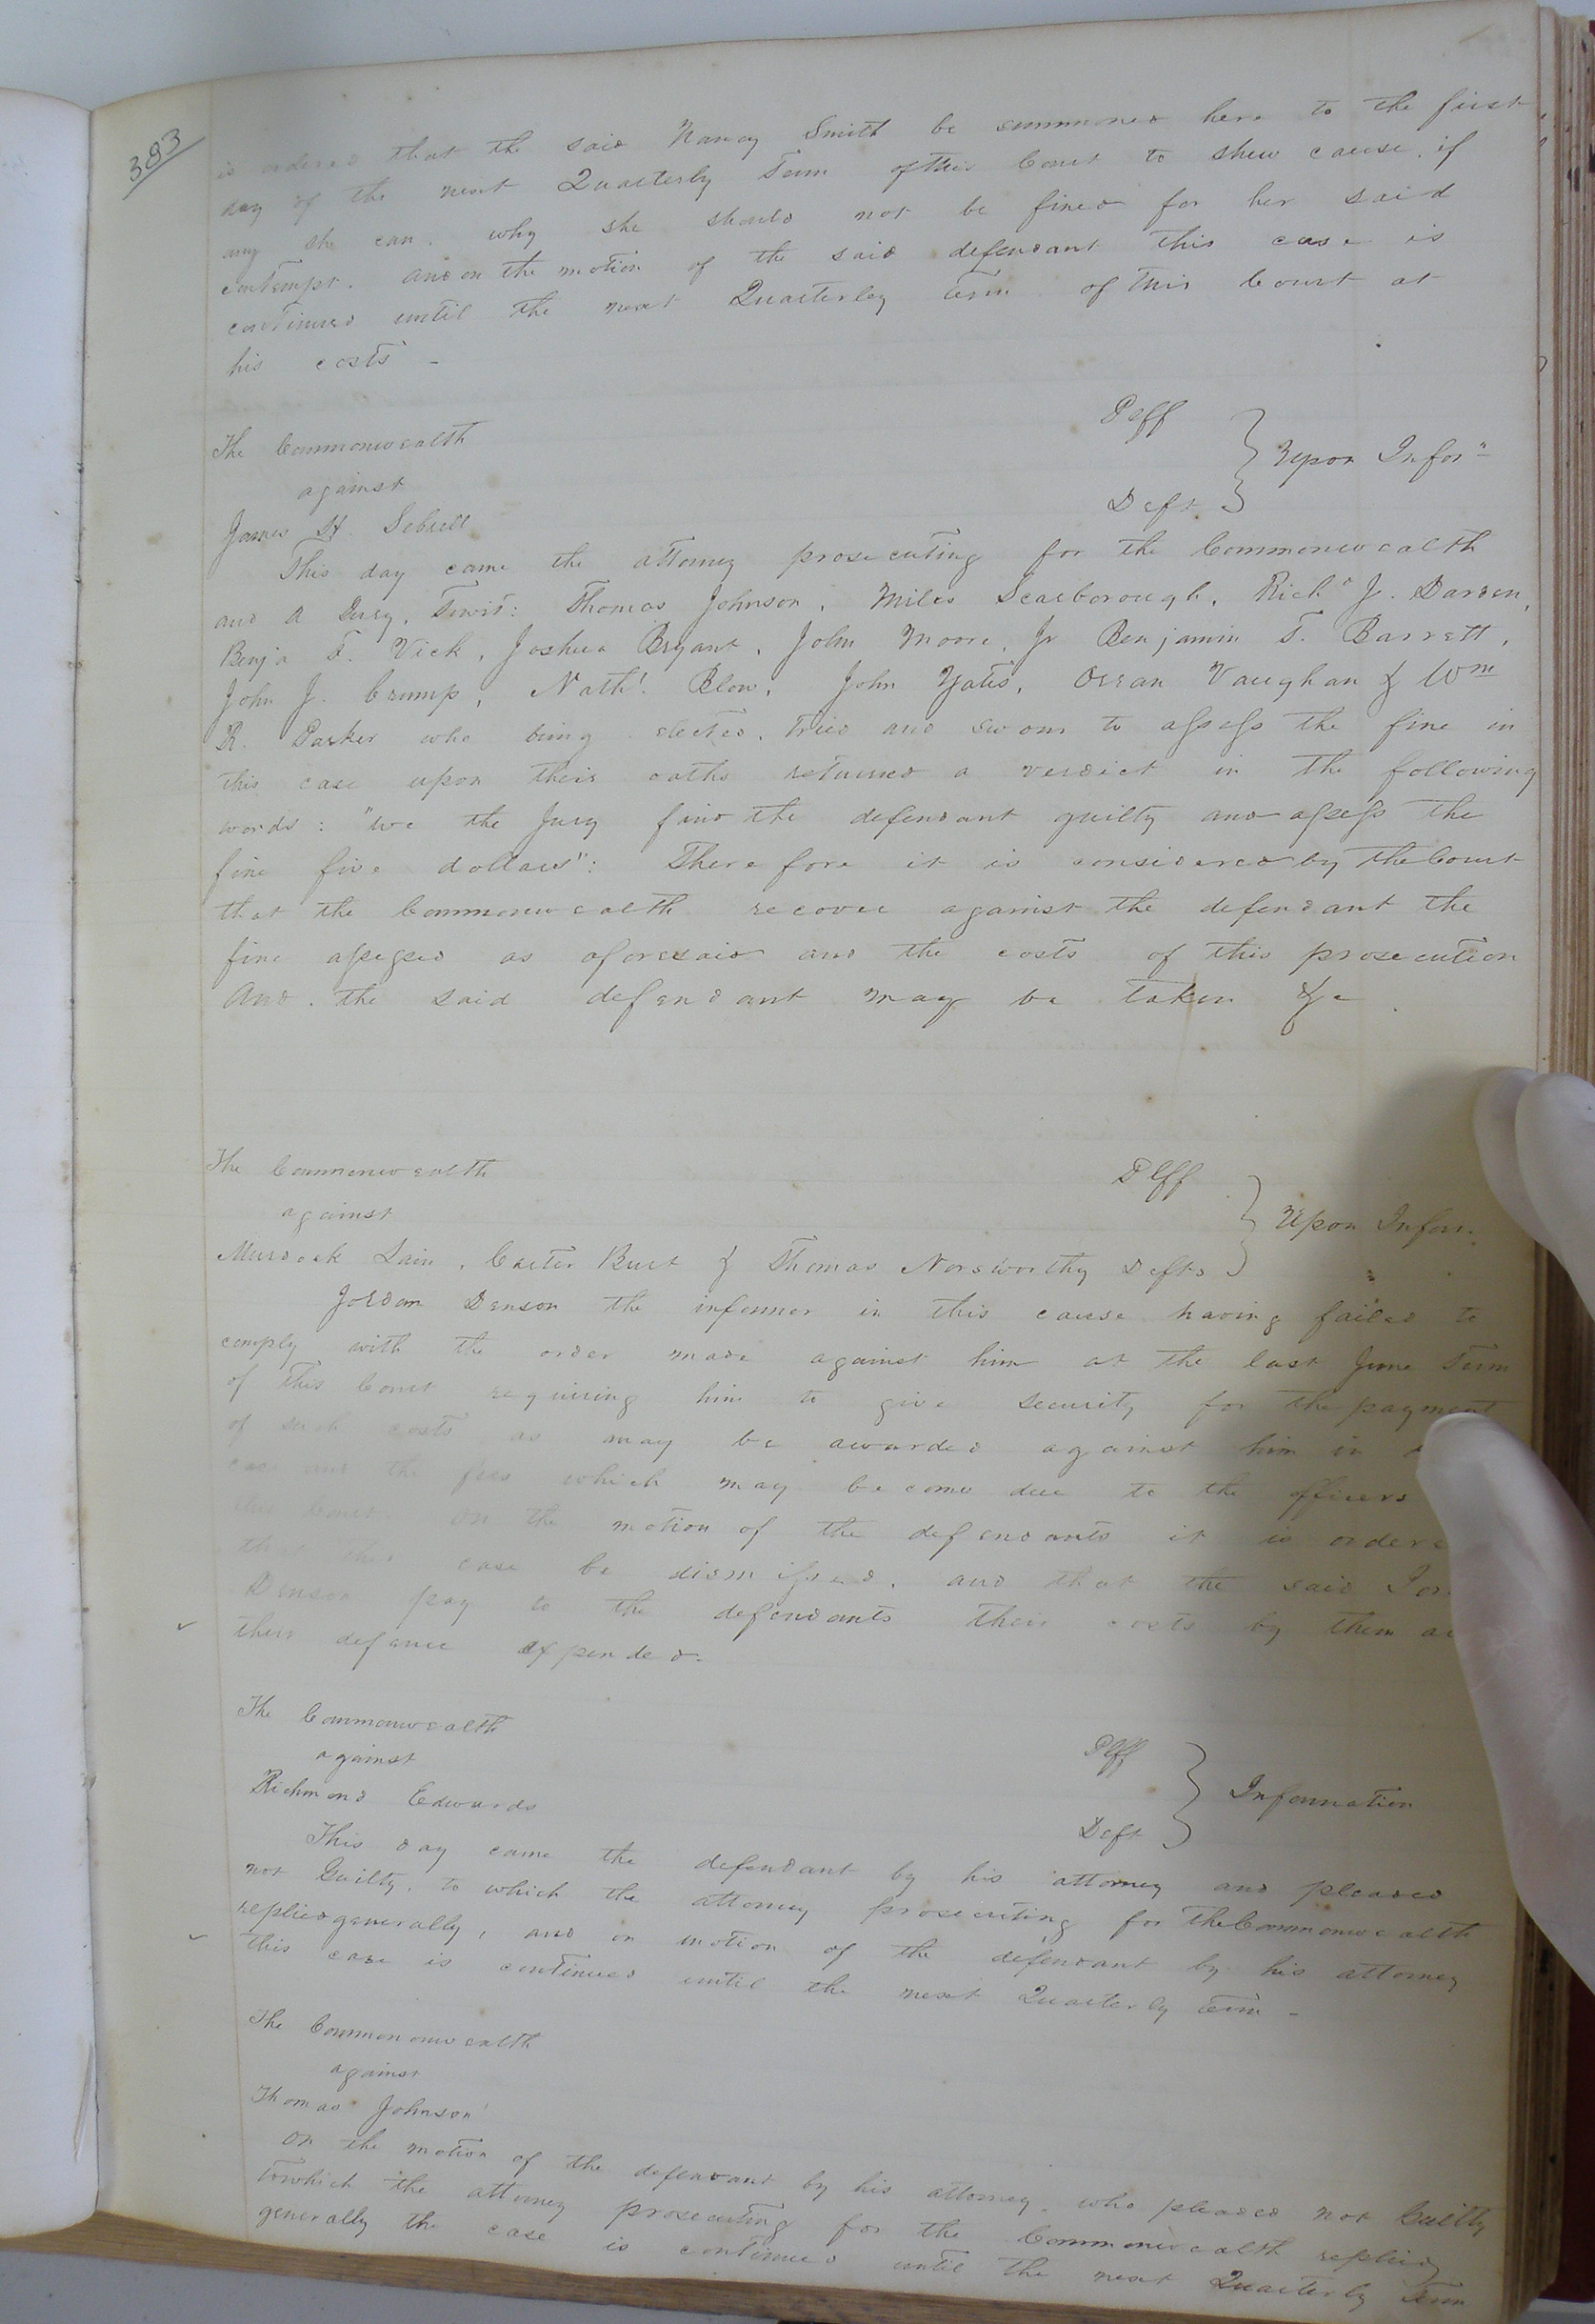 383
is ordered that the said Nancy Smith be summoned here to the first
day of the next Quarterly Term of this Court to shew cause, if
any she can, why she should not be fined for her said
contempt. and on the motion of the said defendant this case is
continued until the next Quarterley Term of this Court at
his costs -
The Commonwealth Plff
against } Upon Infor"
James H. Sebrell Deft
This day came the attorney prosecuting for the Commonwealth
and a Jury, Towit: Thomas Johnson, Miles Scarborough, Richd J. Darden,
Benja T. Vick, Joshua Bryant, John Moore, Jr Benjamin T. Barrett,
John J. Crump, Nathl. Blow, John Yates, Osran Vaughan & Wm
R. Parker who being elected, tried and sworn to assess the fine in
this case upon their oaths returned a verdict in the following
words: "We the Jury find the defendant guilty and assess the
fine five dollars": Therefore it is considered by the Court
that the Commonwealth recover against the defendant the
fine assessed as aforesaid and the costs of this prosecution
And. the said defendant may be taken &c
The Commonwealth Plff
against } Upon Infor.
Murdock Lain, Carter Burt & Thomas Norsworthy Defts
Jordan Denson the informer in this cause having failed to
comply with the order made against him at the last June Term
of this Court requiring him to give security for the payment
of such costs as may be awarded against him in
case and the fees which may become due to the officers
Court. On the motion of the defendants it is ordere
that this case be dismissed, and that the said Jor
Denson pay to the defendants their costs by them
their defence expended.
The Commonwealth Plff
against } Information
Richmond Edwards Deft
This day came the defendant by his attorney and pleaded
not Guilty, to which the attorney prosecuting for the Commonwealth
replied generally, and on motion of the defendant by his attorney
this case is continued until the next Quarterly term -
The Commonwealth
against
Thomas Johnson
On the motion of the defendant by his attorney, who pleaded not Guilty
to which the attorney prosecuting for the Commonwealth replied
generally the case is continued until the next Quarterly Term